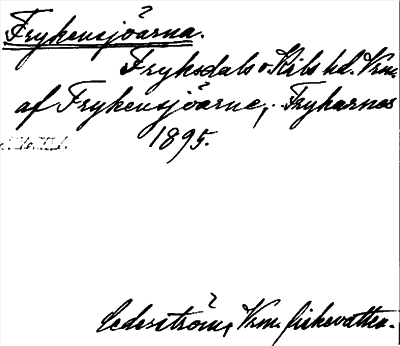 Frykensjöarna.
Fryksdals o. Kils hd. Vrm.
af Frykensjöarne, Frykarnes
1895.
Cederström, Vrm. fiskevatten.